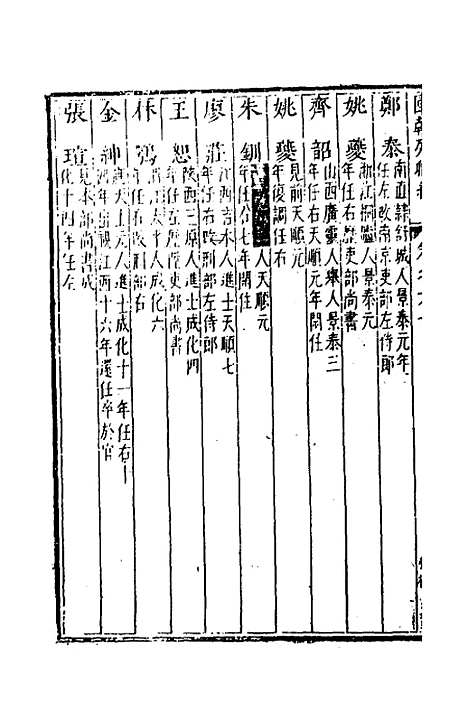 鄭泰 南直隸舒城人景泰元年
任左改南京吏部左侍郎
姚夔 浙江桐廬人景泰元
年任右歷吏部尚書
齊韶 山西廣靈人舉人景泰三
年任右天順元年閒住
姚夔 見前天順元
年復調任右
朱釧 人天順元
年任右七年閒住
廖莊 江西吉水人進士天順七
年任右改刑部左侍郎
王恕 陝西三原人進士成化四
年任左歷南吏部尚書
林鶚 人成化六
年任右改刑部右
金紳 人進士成化十一年任右
年出視江西十六年還任卒於官
張瑄 見本部尚書成
化十四年任左